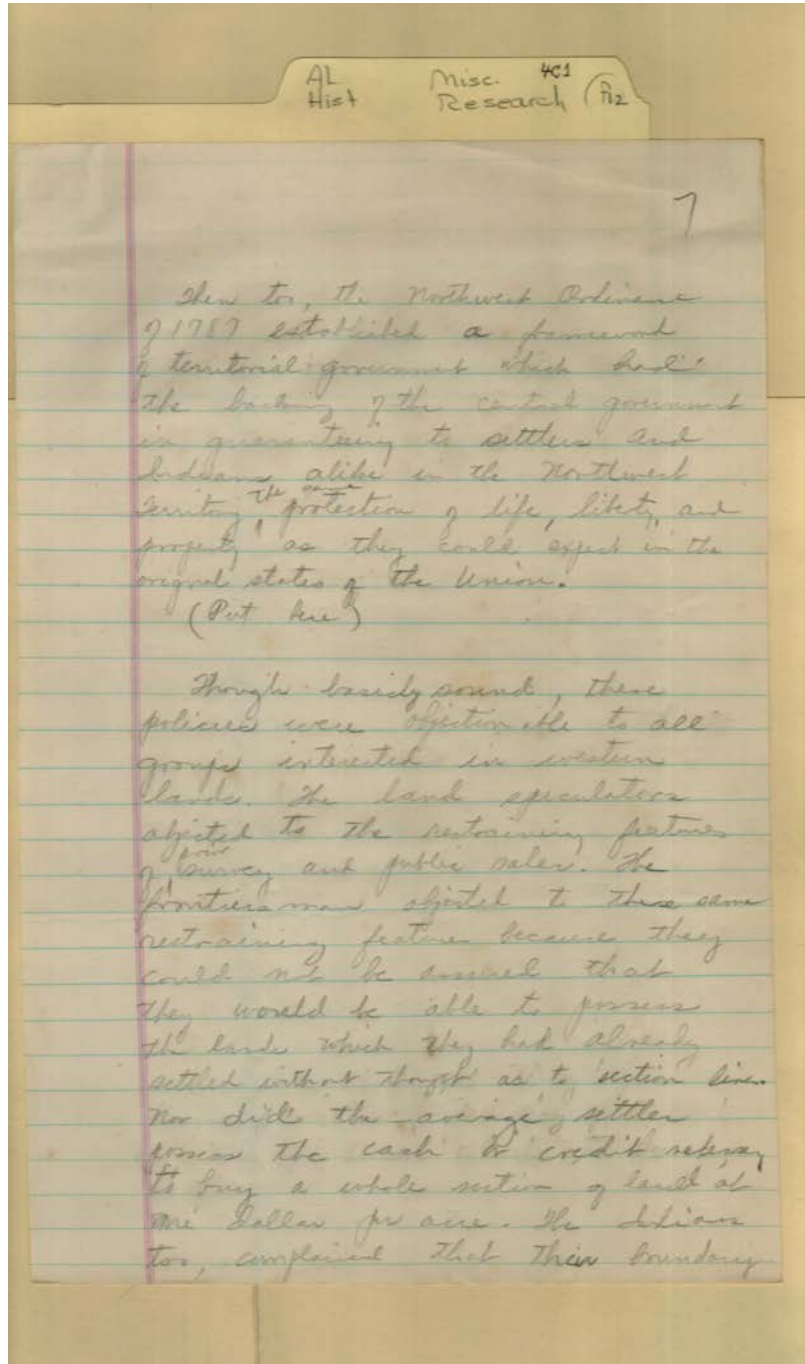 AL Misc. 4C1
Hist Research P12
7
Then too, the Northwest Ordinance
of 1787 established a framework
of territorial government which had
the backing of the central government
in guaranteeing to settlers and
Indians alike in the Northwest
Territory, the same protection of life, liberty, and
property as they could expect in the
original states of the Union.
(Put here)
Though basicly sound, these
policies were objectionable to all
groups interested in western
lands. The land speculators
objected to the restraining features
of prior survey and public sales. The
frontiersman objected to these same
restraining features because they
could not be assured that
they would be able to possess
the lands which they had already
settled without thought as to section lines.
Nor did the average settler
possess the cash or credit necessary
to buy a whole section of land at
one dollar per acre. The Indians
too, complained that their boundary